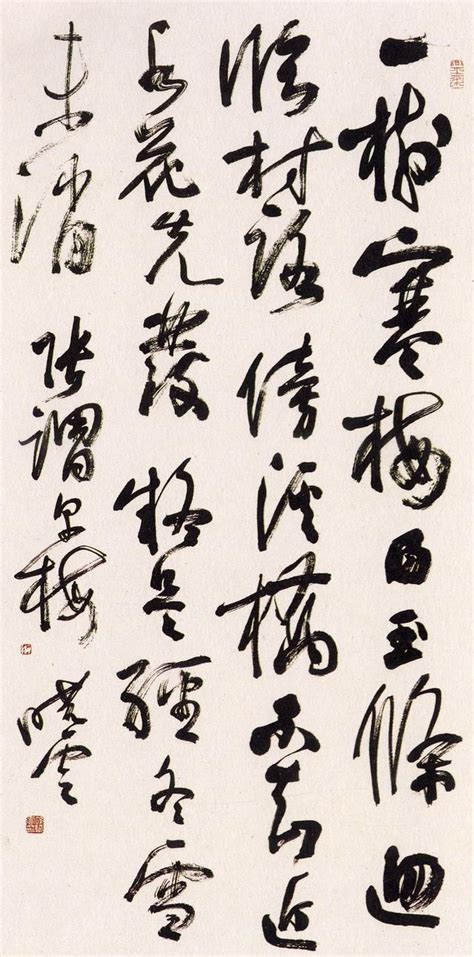 一樹寒梅白玉條迥
臨村路傍溪橋不知近
水花先發疑是經冬雪
未消 張謂早梅 曉雲